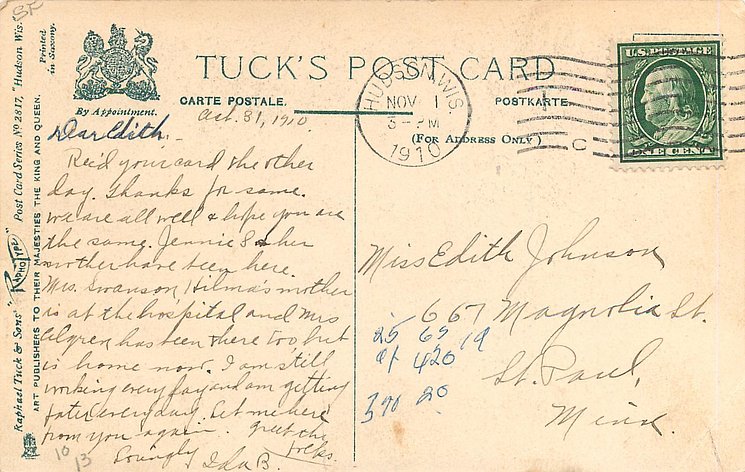 SF
TUCK'S POST CARD
By Appointment.
CARTE POSTALE.
POSTKARTE.
(FOR ADDRESS ONLY)
Raphael Tuck & Sons' "RAPHOTYPE" Post Card Series Nº 2817, "Hudson Wis."
ART PUBLISHERS TO THEIR MAJESTIES THE KING AND QUEEN.
Printed
in Saxony.
HUDSON, WIS.
NOV 1
3 - PM
1910
C
U.S. POSTAGE
ONE CENT
Oct. 31, 1910
Dear Edith.
Rec'd your card the other
day. Thanks for same.
we are all well & hope you are
the same. Jennie S & her
mother have been here.
Mrs. Swanson Hilma's mother
is at the hospital and Mrs
has been there too, but
is home now. I am still
working every day and am getting
fater every day. Let me here
from you again. greet the
folks.
Lovingly Ida B.
Miss Edith Johnson
667 Magnolia St.
St. Paul,
Minn.
25 65 19
at 420
390 20
10
13